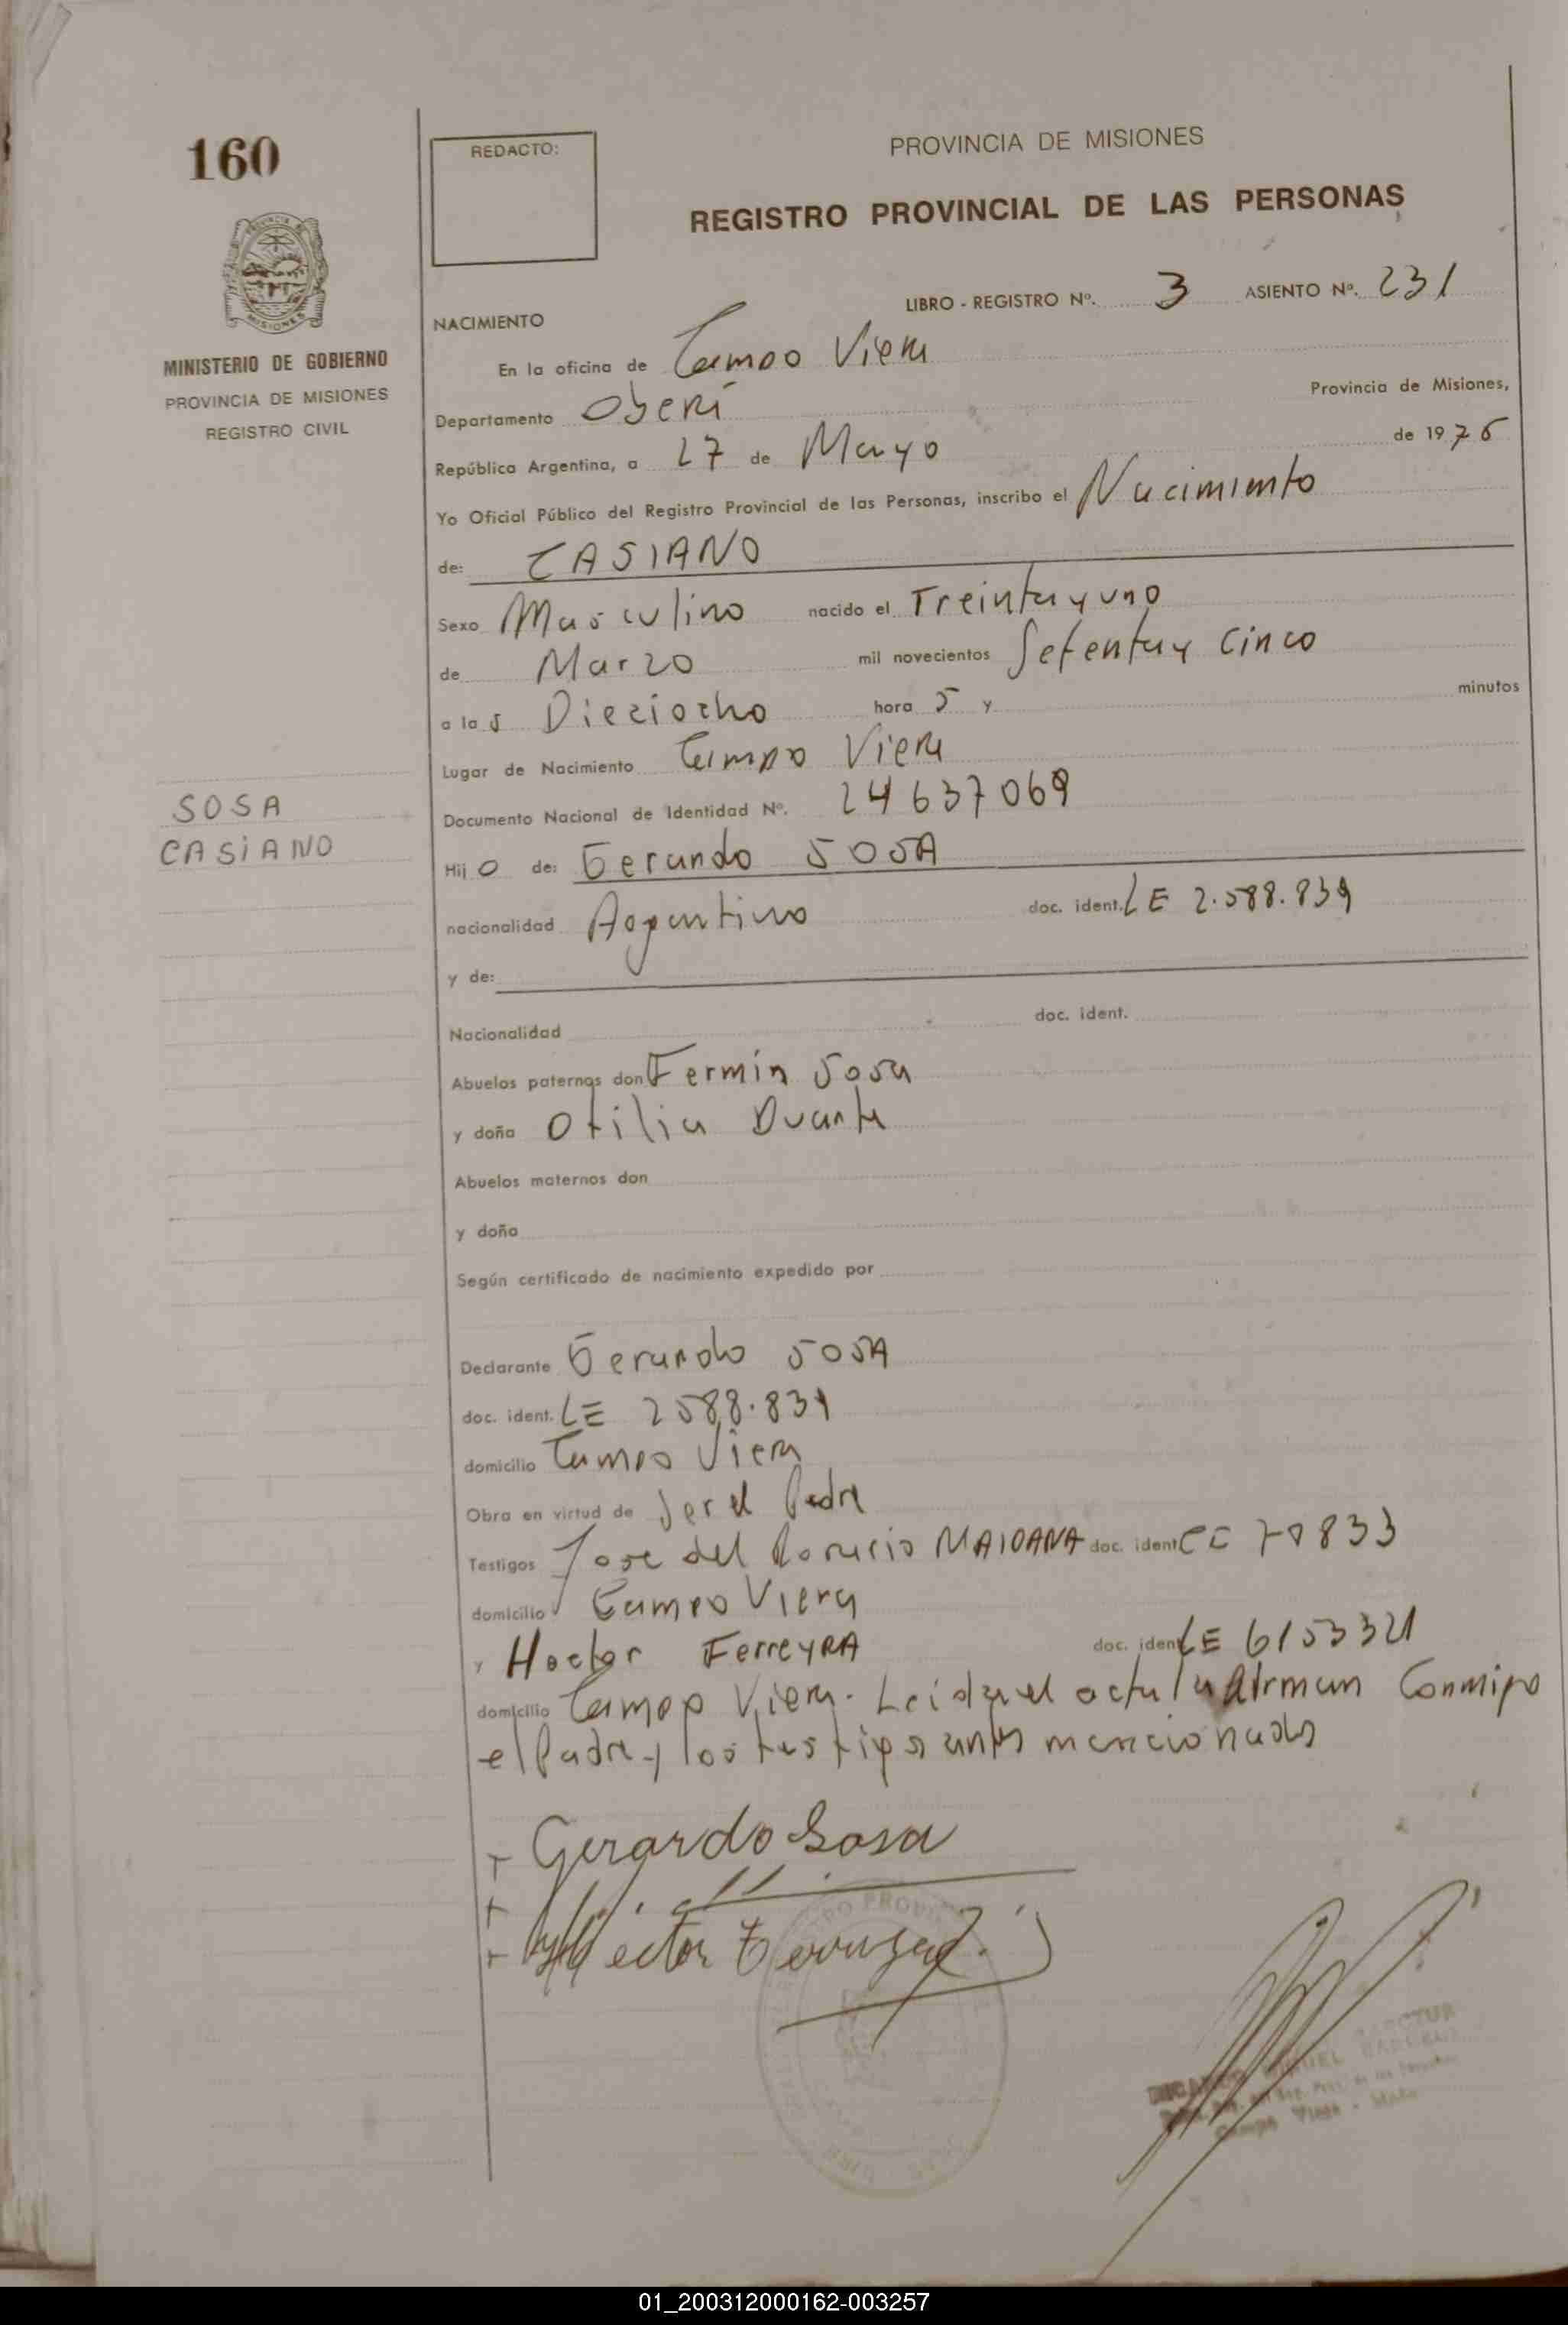 160
REDACTO:
PROVINCIA DE MISIONES
REGISTRO PROVINCIAL DE LAS PERSONAS
MINISTERIO DE GOBIERNO
PROVINCIA DE MISIONES
REGISTRO CIVIL
LIBRO - REGISTRO Nº. 3 ASIENTO Nº. 231
NACIMIENTO
En la oficina de Campo Viera
Departamento Oberá Provincia de Misiones,
República Argentina, a 27 de Mayo de 1976
Yo Oficial Público del Registro Provincial de las Personas, inscribo el Nacimiento
de: CASIANO
Sexo Masculino nacido el Treinta y uno
de Marzo mil novecientos Setenta y Cinco
a las Dieciocho hora s y minutos
Lugar de Nacimiento Campo Viera
SOSA
CASiANO
Documento Nacional de Identidad Nº. 24637069
Hijo de: Gerardo SOSA
nacionalidad Argentino doc. ident. LE 2.588.839
y de:
Nacionalidad doc. ident.
Abuelos paternos don Fermín Sosa
y doña Otilia Duarte
Abuelos maternos don
y doña
Según certificado de nacimiento expedido por
Declarante Gerardo SOSA
doc. ident. LE 2588.839
domicilio Campo Viera
Obra en virtud de Ser el Padre
Testigos Jose del Rosario MAIDANA doc. ident
domicilio Campo Viera
y Hector FerreyRA doc. ident LE 6153321
domicilio Campo Viera. Leida el acta la firman Conmigo
el Padre y los testigos antes mencionados
Gerardo Sosa
Hector
Campo Viera
01_200312000162-003257